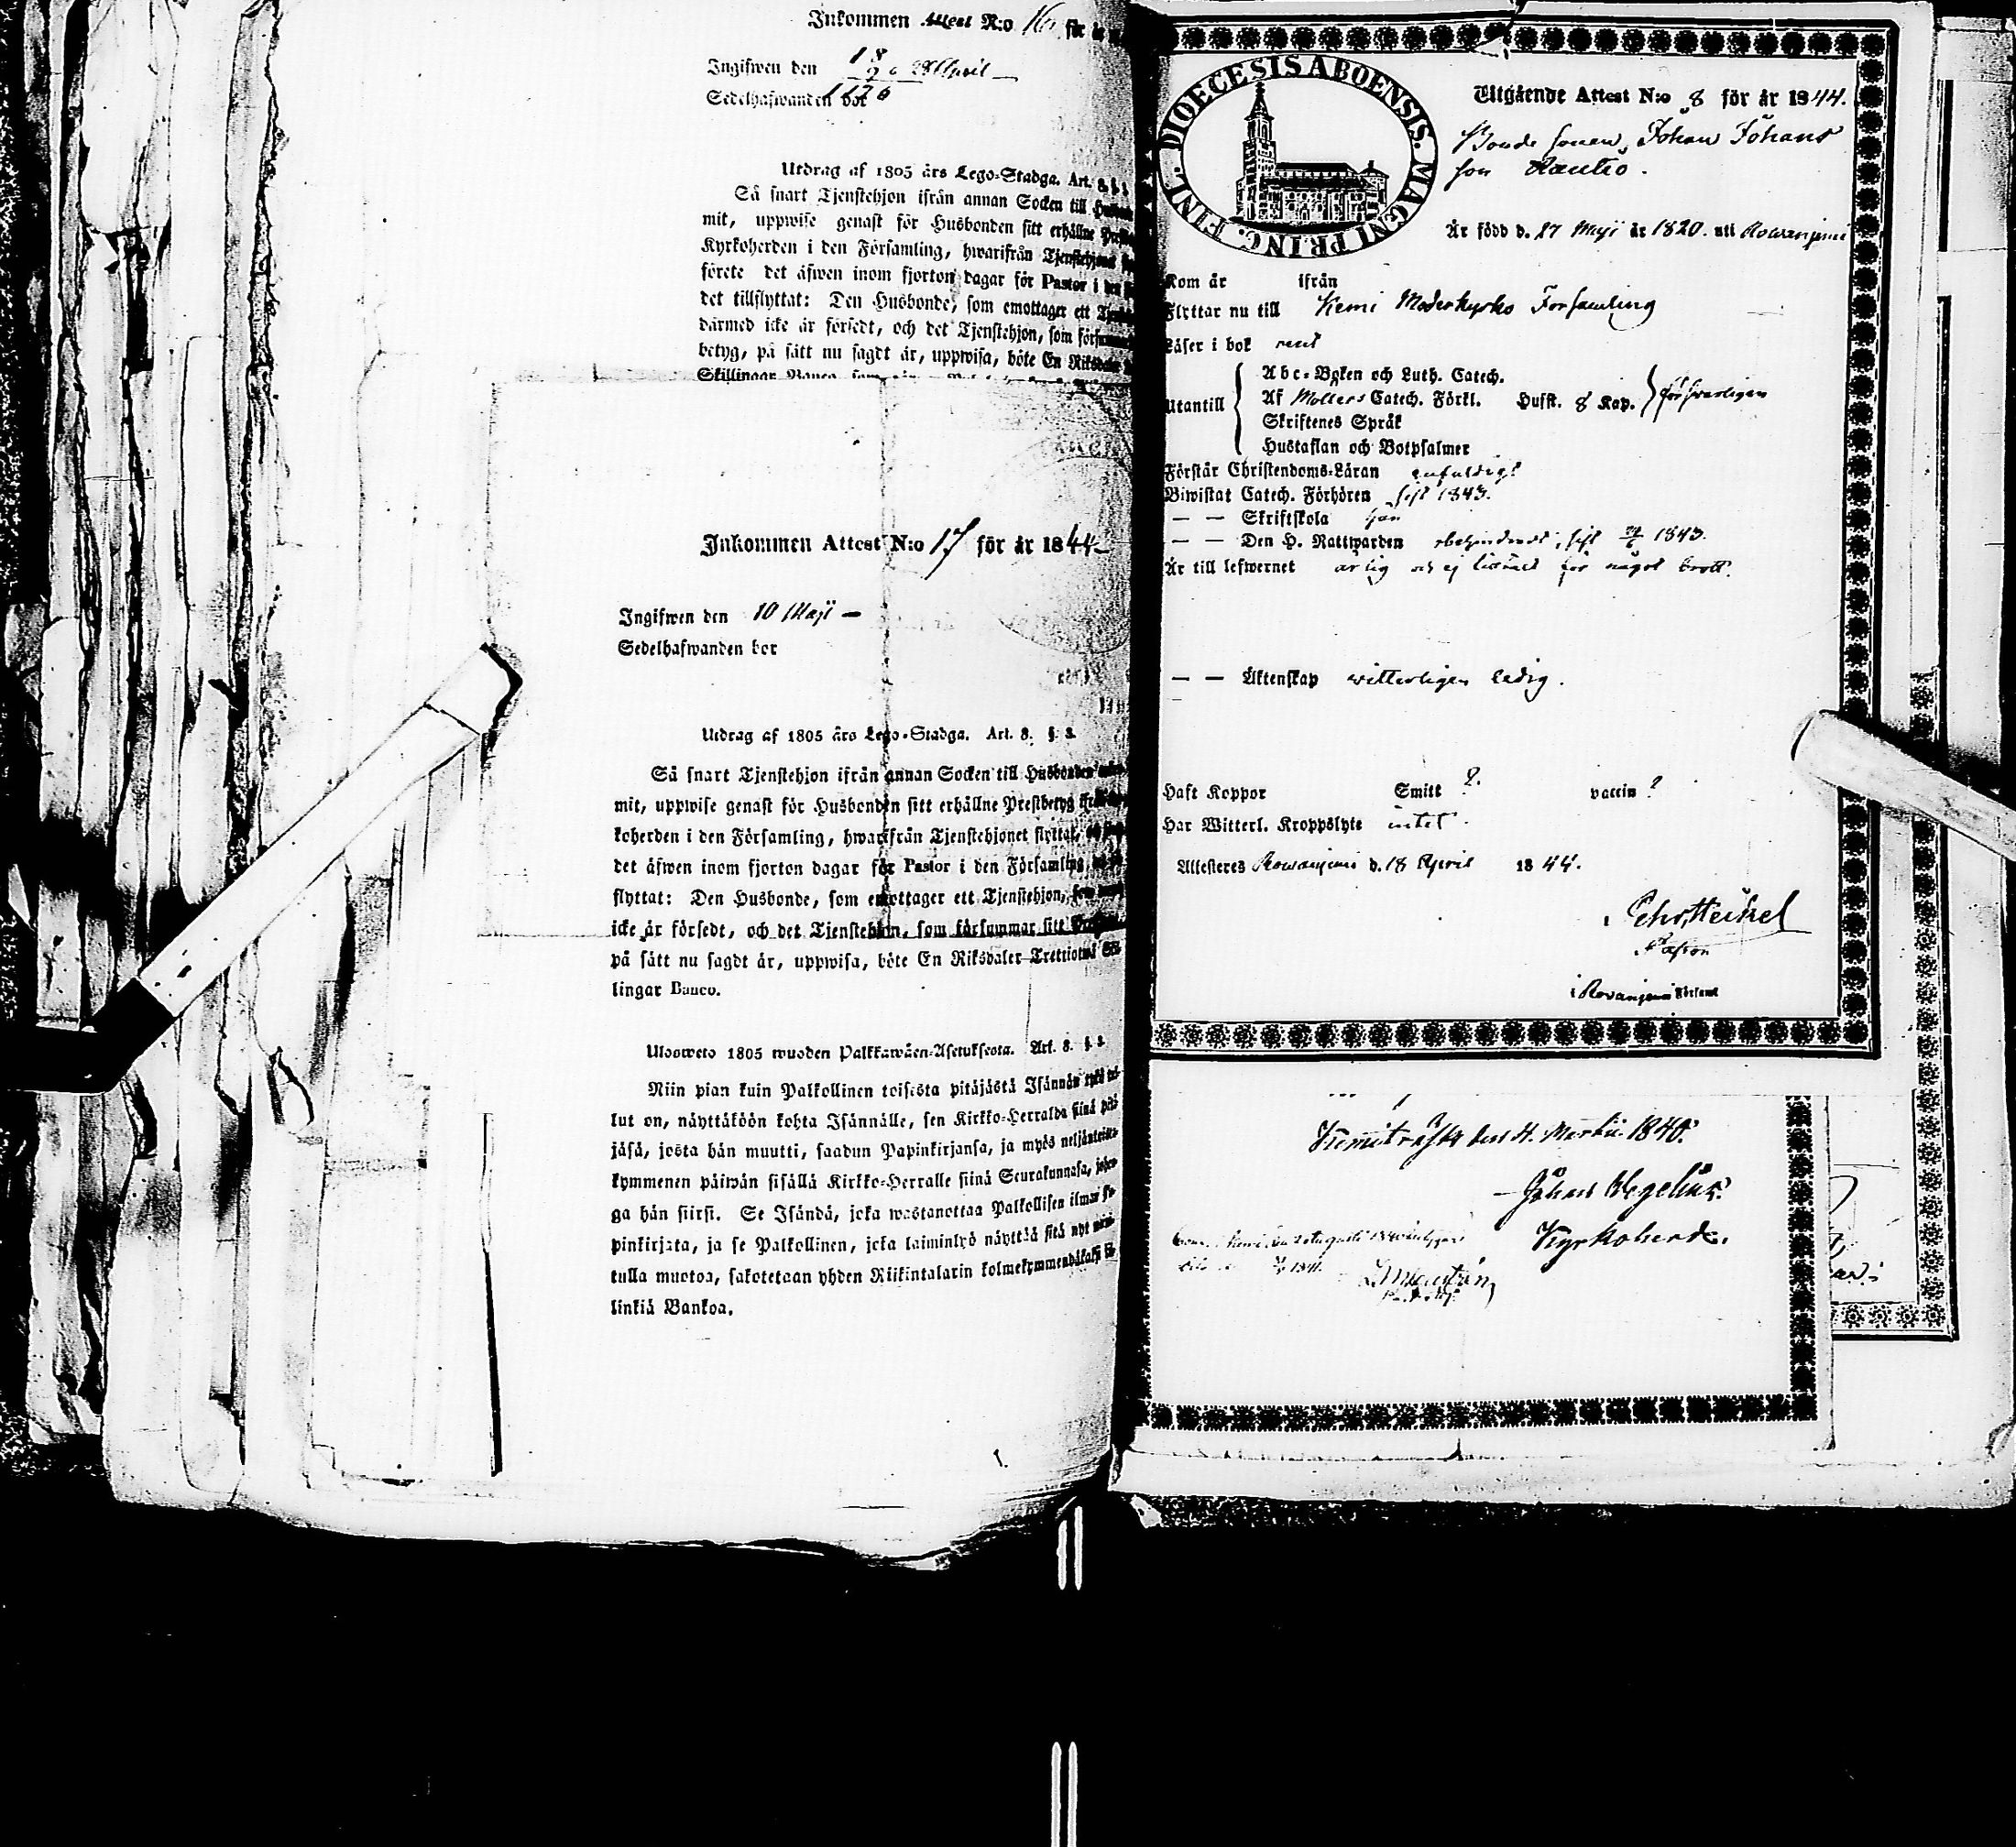 Inkommen Attest N:o 16 för år
Ingifwen den 28 April
Sedelhafwanden bor
Utdrag af 1805 års Lego-Stadga. Art. 8. §. 3.
Så snart Tjenstehjon ifrån annan Socken till
mit, uppwise genast för Husbonden sitt erhållne
Kyrkoherden i den Församling, hwarifrån Tjenstehjonet
förete det äfwen inom fjorton dagar för Pastor i
det tillflyttat: Den Husbonde, som emottager ett
därmed icke är försedt, och det Tjenstehjon, som
betyg, på sätt nu sagdt är, uppwisa, böte En Riksdaler
Skillingar Banco.
Inkommen Attest N:o 17 för år 1844
Ingifwen den 10 Maji –
Sedelhafwanden bor
Utdrag af 1805 års Lego-Stadga. Art. 8. §. 3.
Så snart Tjenstehjon ifrån annan Socken till Husbonden
mit, uppwise genast för Husbonden sitt erhållne Prestbetyg
koherden i den Församling, hwarifrån Tjenstehjonet flyttat,
det äfwen inom fjorton dagar för Pastor i den Församling,
flyttat: Den Husbonde, som emottager ett Tjenstehjon,
icke är försedt, och det Tjenstehjon, som försummar sitt
på sätt nu sagdt är, uppwisa, böte En Riksdaler Trettiotwå
lingar Banco.
Ulosweto 1805 wuoden Palkkawäen-Asetuksesta. Art. 8. §. 3.
Niin pian kuin Palkollinen toisesta pitäjästä Isännän tykö
lut on, näyttäköön kohta Isännälle, sen Kirkko-Herralda siinä pitä
jäsä, josta hän muutti, saadun Papinkirjansa, ja myös neljäntoista
kymmenen päiwän sisällä Kirkko-Herralle siinä Seurakunnasa, johon
ga hän siirsi. Se Isändä, joka wastanottaa Palkollisen ilman
pinkirjata, ja se Palkollinen, joka laiminlyö näyttää sitä nyt
tulla muotoa, sakotetaan yhden Riikintalarin kolmekymmendäkaksi
linkiä Bankoa.
FINL. DIOECESIS ABOENSIS. MAGNI PRINC.
Utgående Attest N:o 8 för år 1844.
Bonde sonen, Johan Johans
son Rautio.
Är född d. 27 Maji år 1820. uti Rowaniemi
Kom år ifrån
Flyttar nu till Kemi Moderkyrko Församling
Läser i bok rent
Abc-Boken och Luth. Catech.
Utantill Af Möllers Catech. Förkl. Husst. 8 Kap. försvarligen
Skriftenes Språk
Hustaflan och Botpsalmer
Förstår Christendoms-Läran enfaldigt
Biwistat Catech. Förhören sist 1843.
— — Skriftskola
— — Den H. Nattwarden sist 1843.
Är till lefwernet ärlig och ej för något brott.
— — Äktenskap witterligen ledig.
Haft Koppor Smitt ?. vaccin ?
Har Witterl. Kroppslyte intet.
Attesteras Rowaniemi d. 18 April 1844.
Ehr. Heikel
Pastor
i Rovaniemi Församl
Kemiträsk den 4. Martii 1840.
Johan Wegelius.
Kyrkoherde.